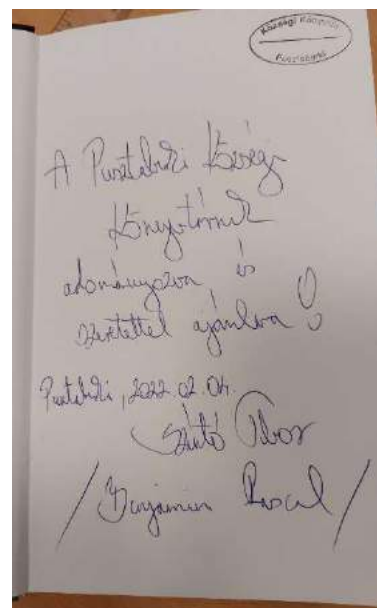 Községi Könyvtár
Pusztabiki
A Pusztabiki Községi
Könyvtárnak
adományozva és
szeretettel ajánlva!
Pusztabiki, 2022.02.04.
Szántó Tibor
/Benjamin Rascal/